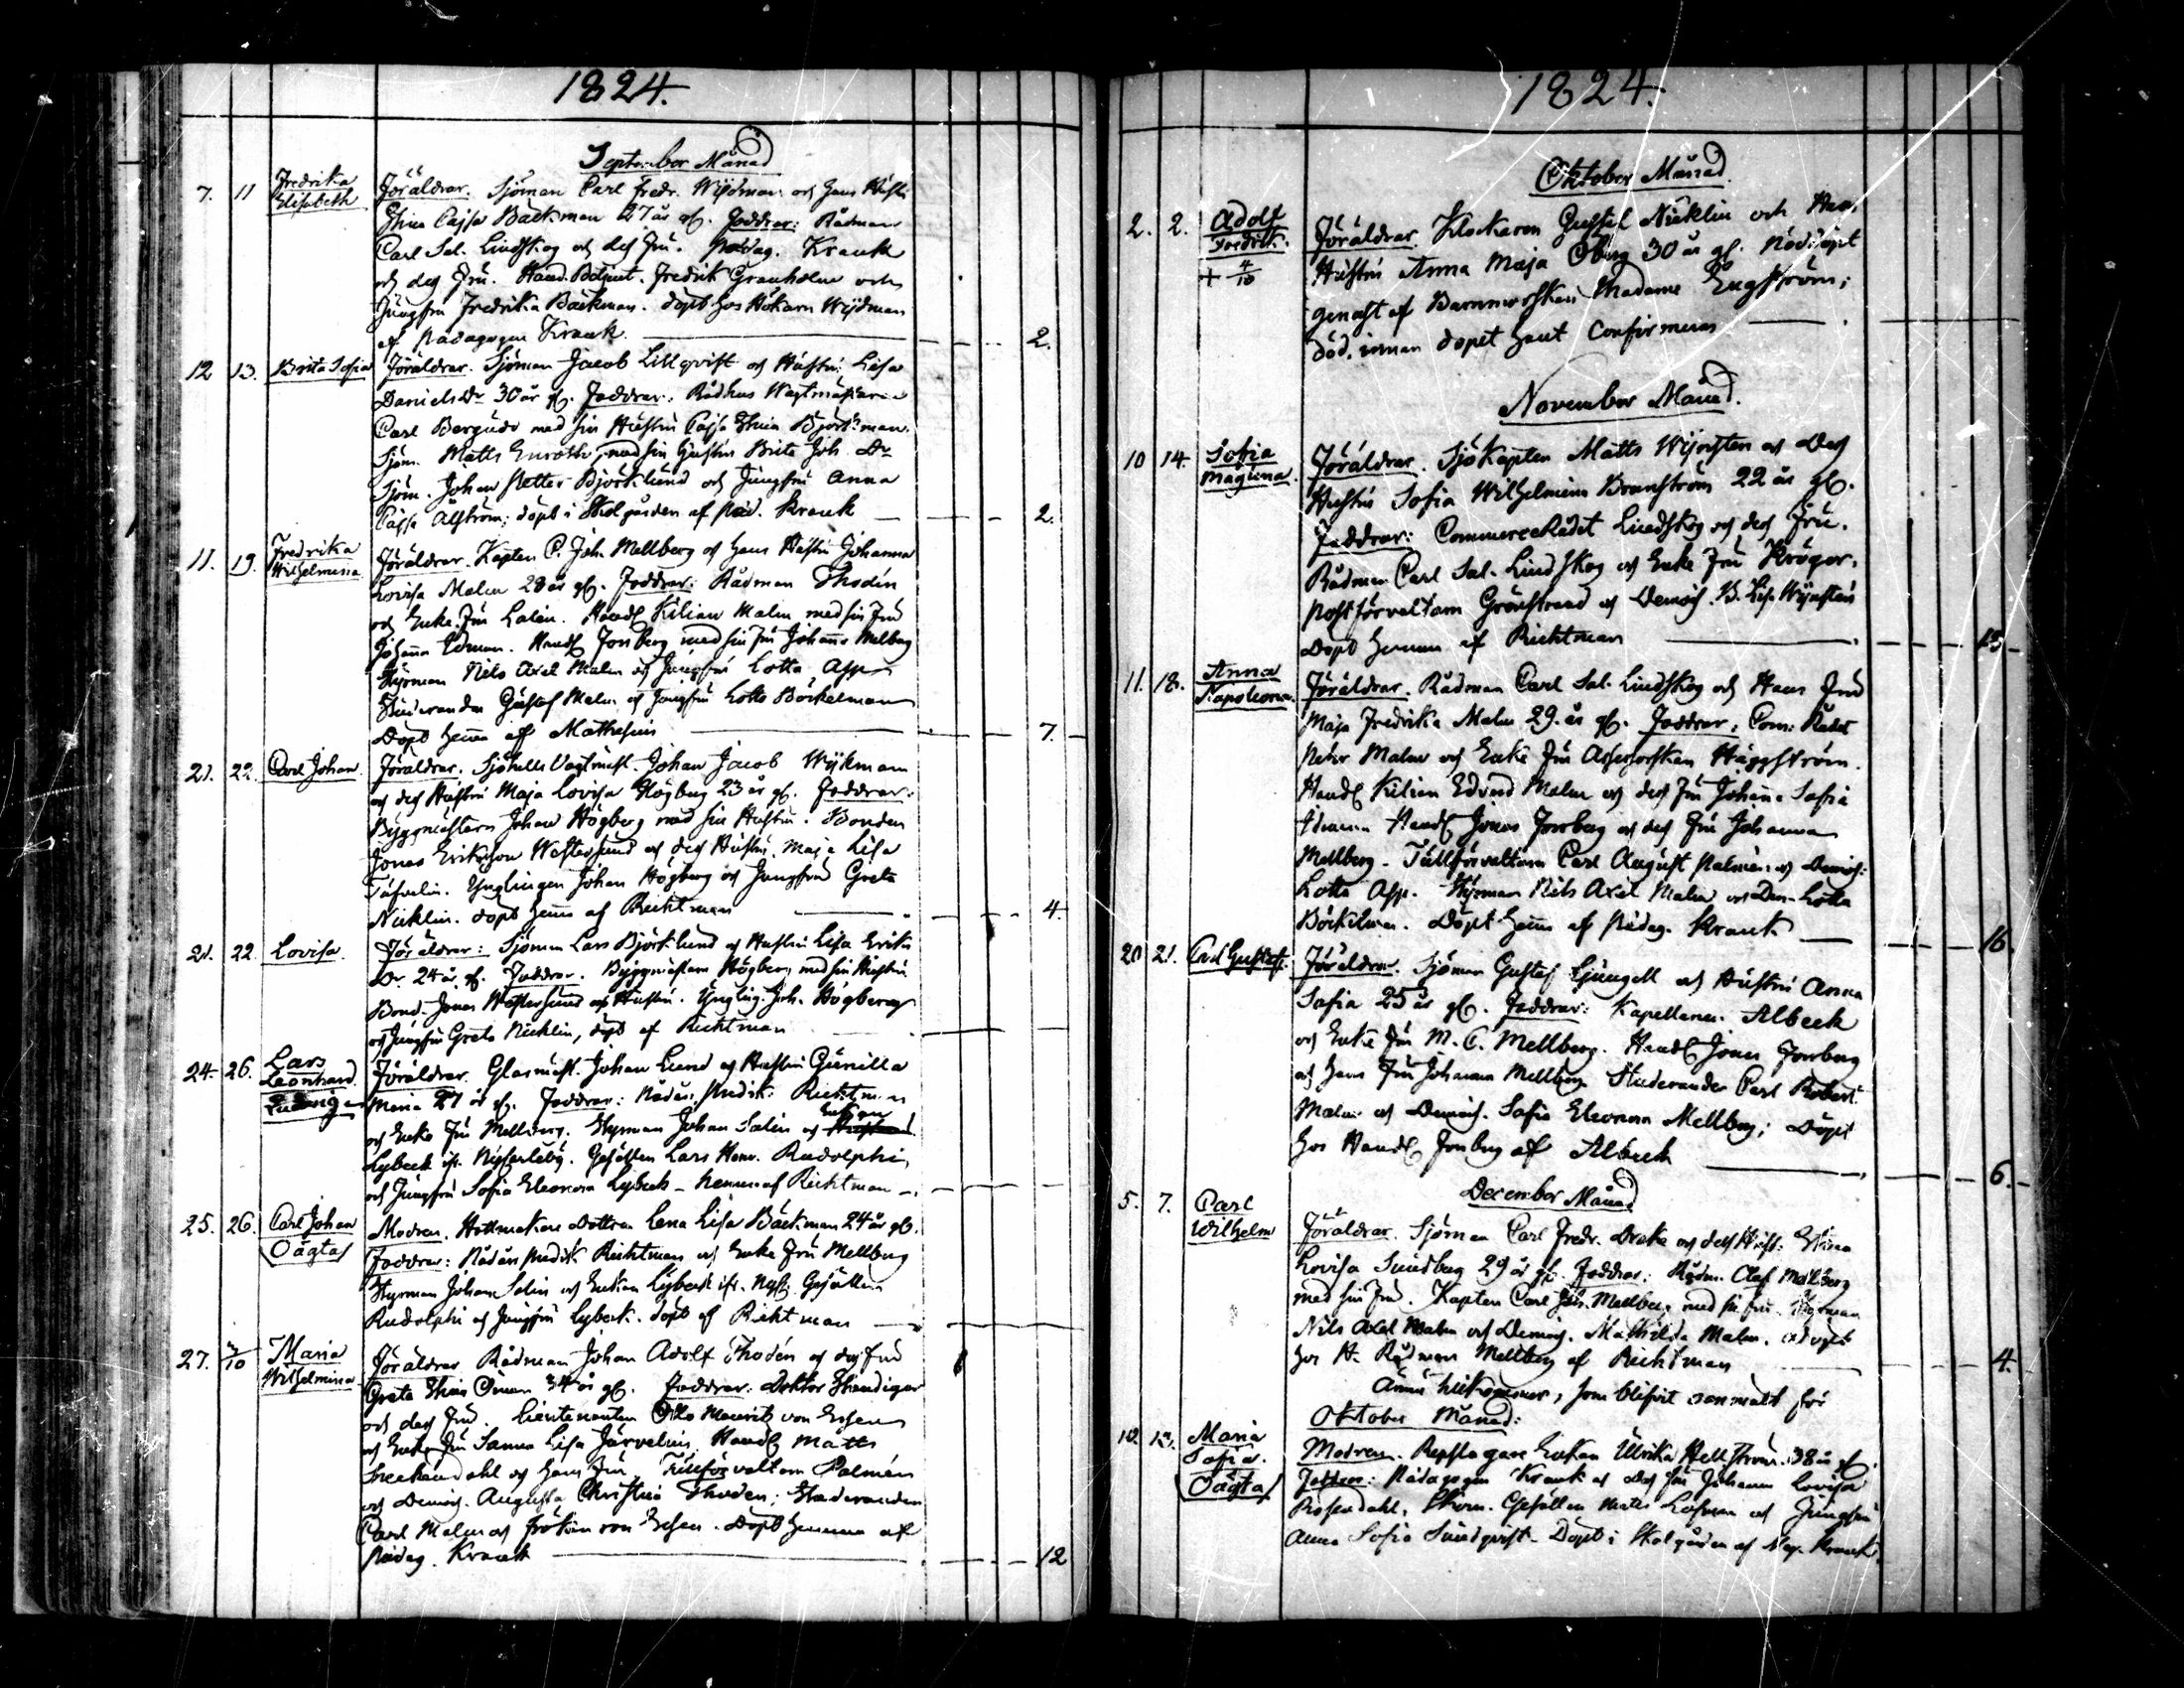 1824.
September Månad
7. 11 Fredrika Elisabeth Föräldrar. Sjöman Carl Fredr. Wijdman och hans Hustru
Cajsa Backman 27 år gl. Faddrar: Rådman
Carl Sal. Lindskog och des Fru. Pædag. Krank
och des Fru. Fredrik Granholm och
Jungfru Fredrika Backman. döpt hos Wijdman
af Pædagogen Krank. 2.
12 13. Brita Sofia Föräldrar. Sjöman Jacob Lillqvist och Hustru Lisa
Daniels Dr 30 år gl. Faddrar: Rådhus Wagtmästaren
Carl Bergudd med sin Hustru Cajsa Stina Björkman.
Sjöm. Matts Enroth med sin Hustru Brita Joh. Dr
Sjöm. Johan Petter Björklund och Jungfru Anna
Cajsa Ahlström; döpt i Skolgården af Pæd. Krank 2.
11. 19. Fredrika Wilhelmina Föräldrar. Kapten P. Joh. Mellberg och hans Hustru Johanna
Lovisa Malm 28 år gl. Faddrar: Rådman Thodén
och Enke Fru Calén. Handl Kilian Malm med sin Fru
Johanna Edman. Handl Forsberg med sin Fru Johanna Mellberg
Styrman Nils Axel Malm och Jungfru Lotta Asp
Studeranden Gustaf Malm och Jungfru Lotta Böckelman
Döpt hema af Mathesius 7.
21. 22. Carl Johan Föräldrar. Sjötulls Vagtmäst. Johan Jacob Wijkman
och des Hustru Maja Lovisa Högberg 23 år gl. Faddrar:
Byggmästarn Johan Högberg med sin Hustru. Bonden
Jonas Eriksson Westersund och des Hustru Maja Lisa
Ynglingen Johan Högberg och Jungfru Greta
Nicklin. döpt hema af Ricktman 4.
21. 22 Lovisa. Föräldrar: Sjöman Lars Björklund och Hustru Lisa Eriks
Dr 24 år gl. Faddrar. Byggmästarn Högberg med sin Hustru
Bond. Jonas Westersund och Hustru. Yngling. Joh. Högberg
och Jungfru Greta Nicklin, döpt af Ricktman
24. 26. Lars Leonhard Föräldrar. Glasmäst. Johan Lund och Hustru Gunilla
Maria 27 år gl. Faddrar: Ricktman
och Enke Fru Mellberg. Styrman Johan Salin och Enkan
Lybeck ifr. Nykarleby. Gesällen Lars Henr. Rudolphi,
och Jungfru Sofia Eleonora Lybeck - hemma af Ricktman
25. 26. Carl Johan (Oägta) Modren. Hattmakare Dottren Lena Lisa Backman 24 år gl.
Faddrar: Ricktman och Enke Fru Mellberg
Styrman Johan Salin och Enkan Lybeck ifr. Gesällen
Rudolphi och Jungfru Lybeck. döpt af Ricktman
27. /10 Maria Wilhelmina Föräldrar Rådman Johan Adolf Thodén och des Fru
Greta Stina Öman 34 år gl. Faddrar: Doktor
och des Fru. Lieutenanten Otto Mauritz von Essen
och Enke Fru Sanna Lisa Järvelius. Handl Matts
och hans Fru. Tullförvaltarn Palmén
och Demois. Augusta Christina Thoden; Studeranden
Carl Malm och Fröken von Essen. Döpt hemma af
Pædag. Krank 12
1824.
Oktober Månad
2. 2. Adolf Fredrik. + 4/10 Föräldrar. Klockaren Gustaf Nicklin och Hans
Hustru Anna Maja Öberg 30 år gl. Nöddöpt
genast af Barnmorskan Madame Engström;
död, innan dopet hant Confirmeras
November Månad.
10 14. Sofia Magna Föräldrar. Sjökapten Matts och Des
Hustru Sofia Wilhelmina Branström 22 år gl.
Faddrar: CommerceRådet Lindskog och des Fru.
Rådman Carl Sal. Lindskog och Enke Fru Kröger.
Postförvaltarn Grönstrand och Demois. B. Lisa
Döpt hemma af Ricktman 13
11. 18. Anna Napoleona. Föräldrar. Rådman Carl Sal. Lindskog och Hans Fru
Maja Fredrika Malm 29. år gl. Faddrar: Com: Rådet
Petter Malm och Enke Fru Assessorskan Häggström.
Handl Kilian Edvard Malm och des Fru Johanna Sofia
Handl Jonas Forsberg och des Fru Johanna
Mellberg. Tullförvaltarn Carl August Palmén och Demois:
Lotta Asp. Styrman Nils Axel Malm och Dem. Lotta
Böckelman. Döpt hema af Pædag. Krank 16.
20 21. Carl Gustaf. Föräldrar. Sjöman Gustaf Ljungell och Hustru Anna
Sofia 25 år gl. Faddrar: Kapellanen Albeck
och Enke Fru M. C. Mellberg. Handl Jonas Forsberg
och hans Fru Johanna Mellberg Studeranden Carl Robert
Malm och Demois. Sofia Eleonora Mellberg; Döpt
hos Handl Forsberg af Albeck 6.
December Månad
5. 7. Carl Wilhelm Föräldrar. Sjöman Carl Fredr. Drake och des Hust: Stina
Lovisa Sundberg 29 år gl. Faddrar: Rådm. Olof Mellberg
med sin Fru. Kapten Carl Joh. Mellberg med sin Fru. Styrman
Nils Axel Malm och Demois. Mathilda Malm. döpt
hos H. Rådman Mellberg af Ricktman 4.
Ännu tillkommer, som blifvit oanmält för
Oktober Månad:
10. 13. Maria Sofia. (Oägta) Modren. Repslagare Enkan Ulrika Hellström. 38 år gl.
Faddrar: Pædagogen Krank och Des Fru Johanna Lovisa
Rosendahl. Gesällen Matts Löfman och Jungfru
Anna Sofia Sundqvist. Döpt i Skolgården af Mag. Krank.